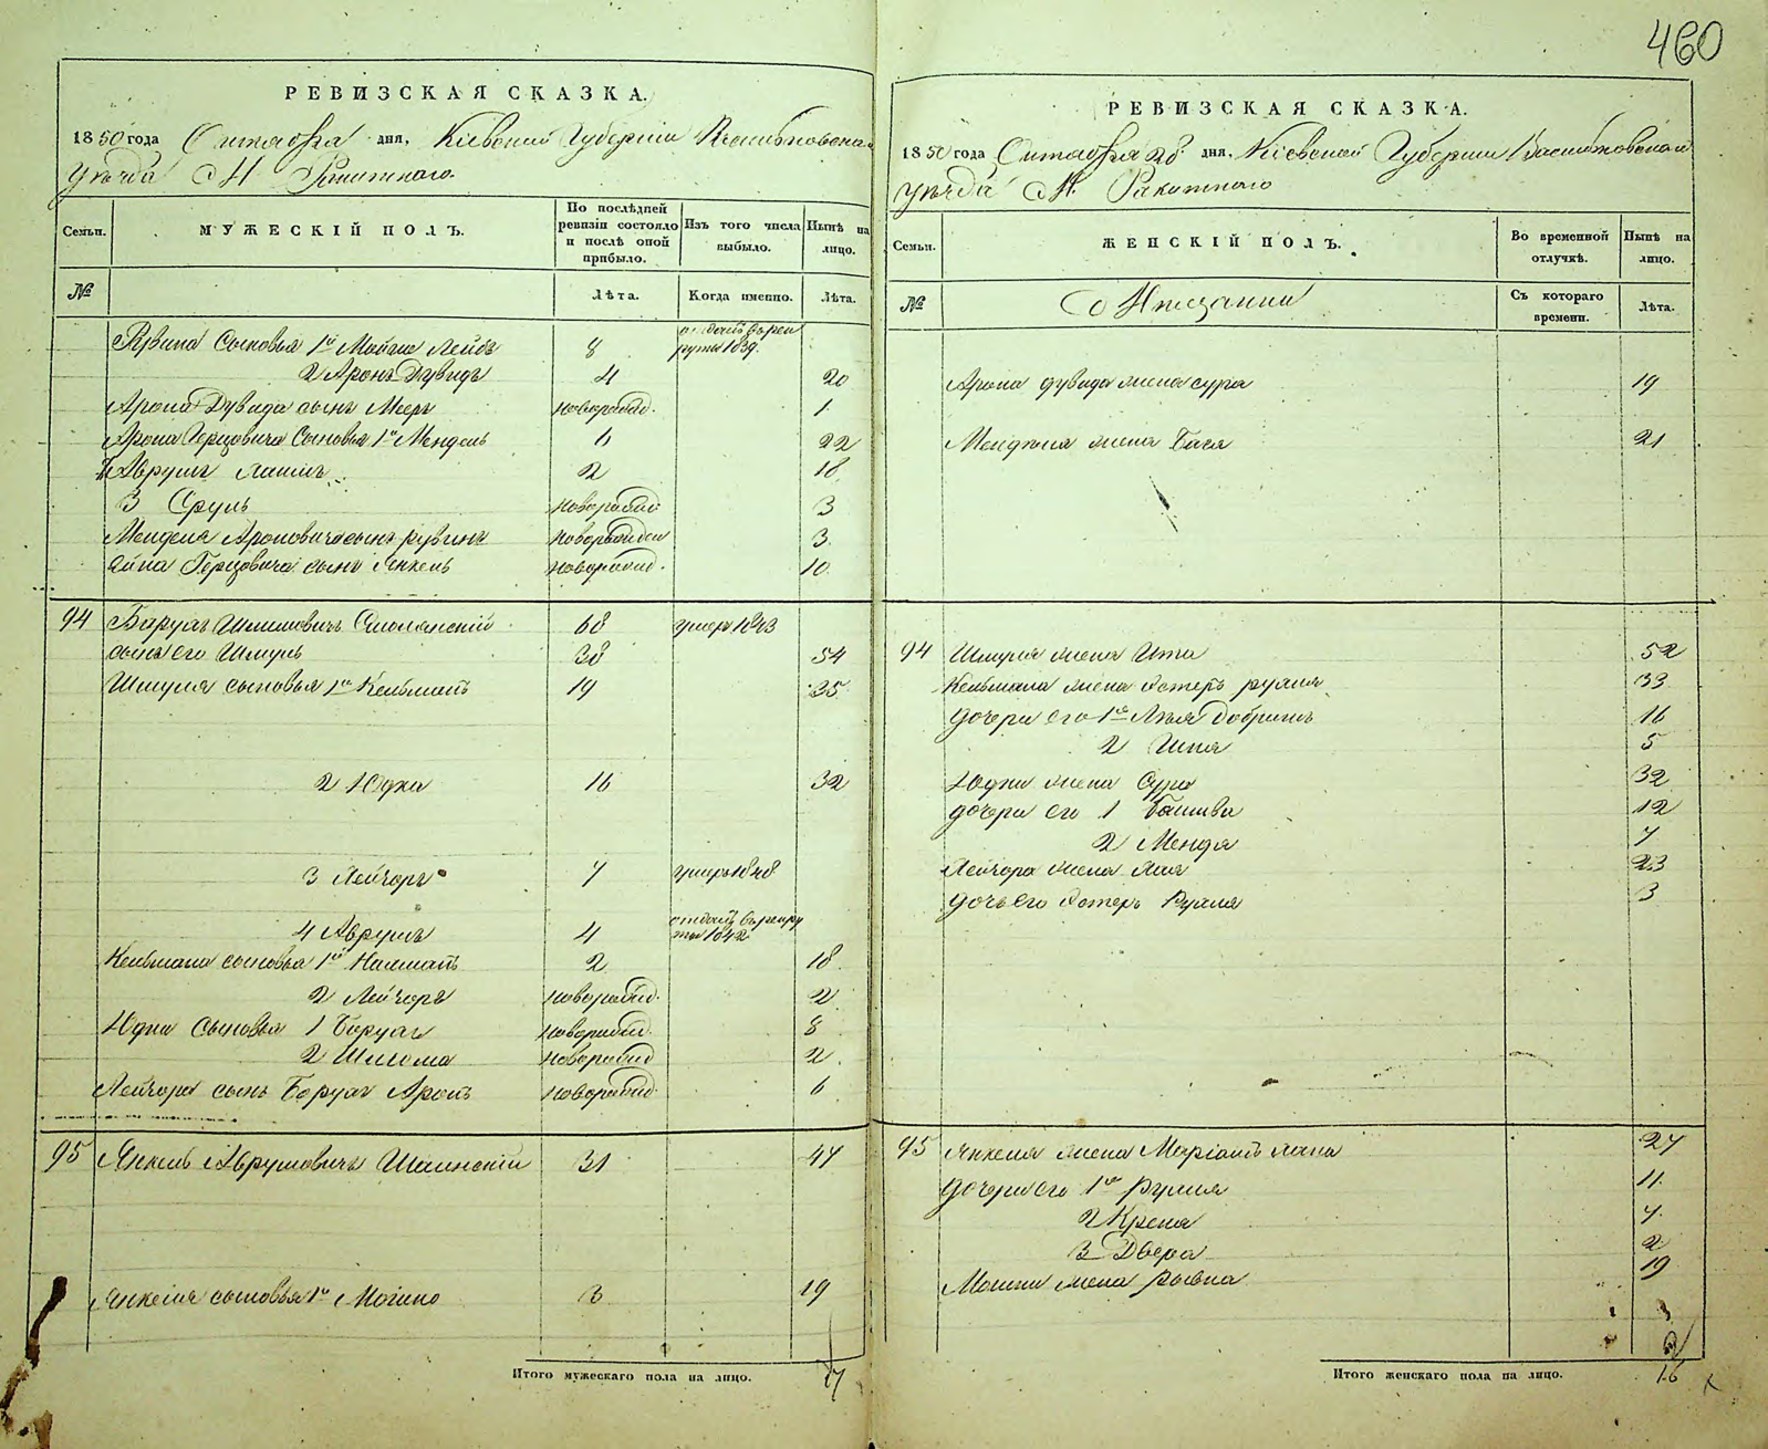 460
РЕВИЗСКАЯ СКАЗКА.
1850 года Октября дня, Кіевской Губерніи Васильковскаго
Уѣзда М Ракитнаго.
Семьи.
МУЖЕСКІЙ ПОЛЪ.
По послѣдней ревизіи состояло и послѣ оной прибыло.
Изъ того числа выбыло.
Нынѣ на лицо.
№
Лѣта.
Когда именно.
Лѣта.
Рувина Сыновья 1й Мовша Лейбъ 8 отданъ въ рекруты 1839.
2 Аронъ Дувидъ 4 20
Арона Дувида сынъ Мееръ новорожд. 1
Арона Герцовича Сыновья 1й Мендель 6 22
2 Аврумъ 2 18
3 Сруль новорожд 3
Менделя Ароновича сынъ рувинъ новорожден 3
Герцовича сынъ Янкель новорожд. 10
94 Барухъ Шлиомовичъ Смолянскій 68 умеръ 1843
сынъ его Шмуль 38 54
Шмуля сыновья 1й Кельманъ 19 35
2 Юдка 16 32
3 Лейзоръ 7 умеръ 1848
4 Аврумъ 4 отданъ въ рекруты 1842
Кельмана сыновья 1й Нахманъ 2 18
2 Лейзоръ новорожд. 2
Юдки Сыновья 1 Борухъ новорожд. 8
2 Шлиома новорожд 2
Лейзора сынъ Борухъ Аронъ новорожд. 6
95 Янкель Аврумовичъ Шалинскій 31 47
Янкеля сыновья 1й Мошко 3 19
Итого мужескаго пола на лицо. 17
РЕВИЗСКАЯ СКАЗКА.
1850 года Октября 28 дня, Кіевской Губерніи Васильковскаго
уѣзда М. Ракитнаго
Семьи.
ЖЕНСКІЙ ПОЛЪ.
Во временной отлучкѣ.
Нынѣ на лицо.
№
Мѣщанки
Съ котораго времени.
Лѣта.
Арона дувида жена сура 19
Менделя жена Бася 21
94 Шмуля жена Ита 52
Кельмана жена Эстеръ рухля 33
дочери его 1я Добришъ 16
2 5
Юдки жена Сура 32
дочери его 1 Башива 12
2 Мендя 7
Лейзора жена Лея 23
дочь его Эстеръ Рухля 3
95 Янкеля жена Маріамъ хана 27
дочери его 1я рухля 11
2 Крейна 7
3 Двейра 2
Мошки жена рывка 19
Итого женскаго пола на лицо. 16